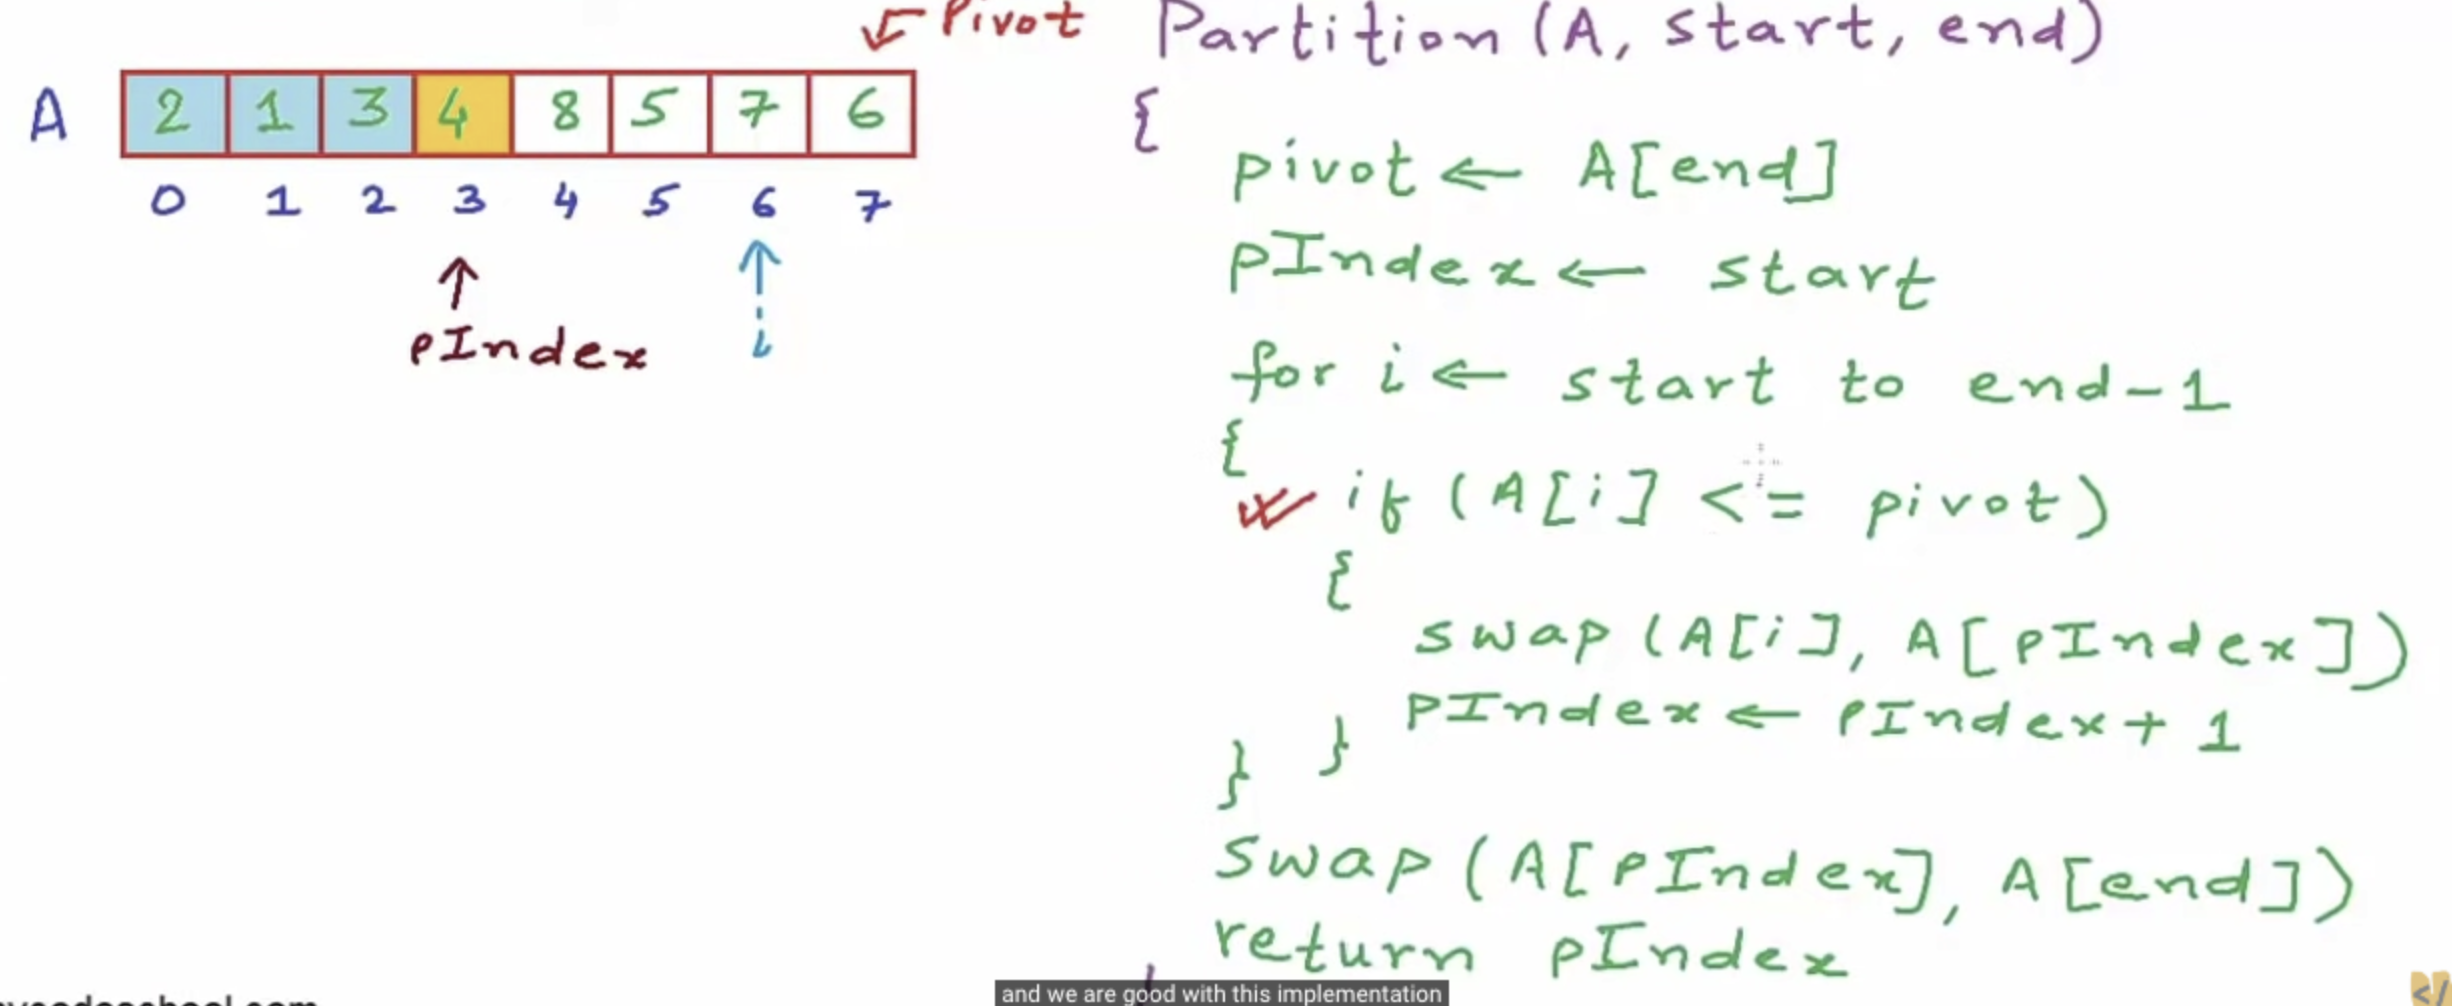 Pivot
A 2 1 3 4 8 5 7 6
0 1 2 3 4 5 6 7
pIndex i
Partition (A, start, end)
{
pivot ← A[end]
pIndex ← start
for i ← start to end-1
{
if (A[i] <= pivot)
{
swap (A[i], A[pIndex])
pIndex ← pIndex + 1
}
}
swap (A[pIndex], A[end])
return pIndex
and we are good with this implementation